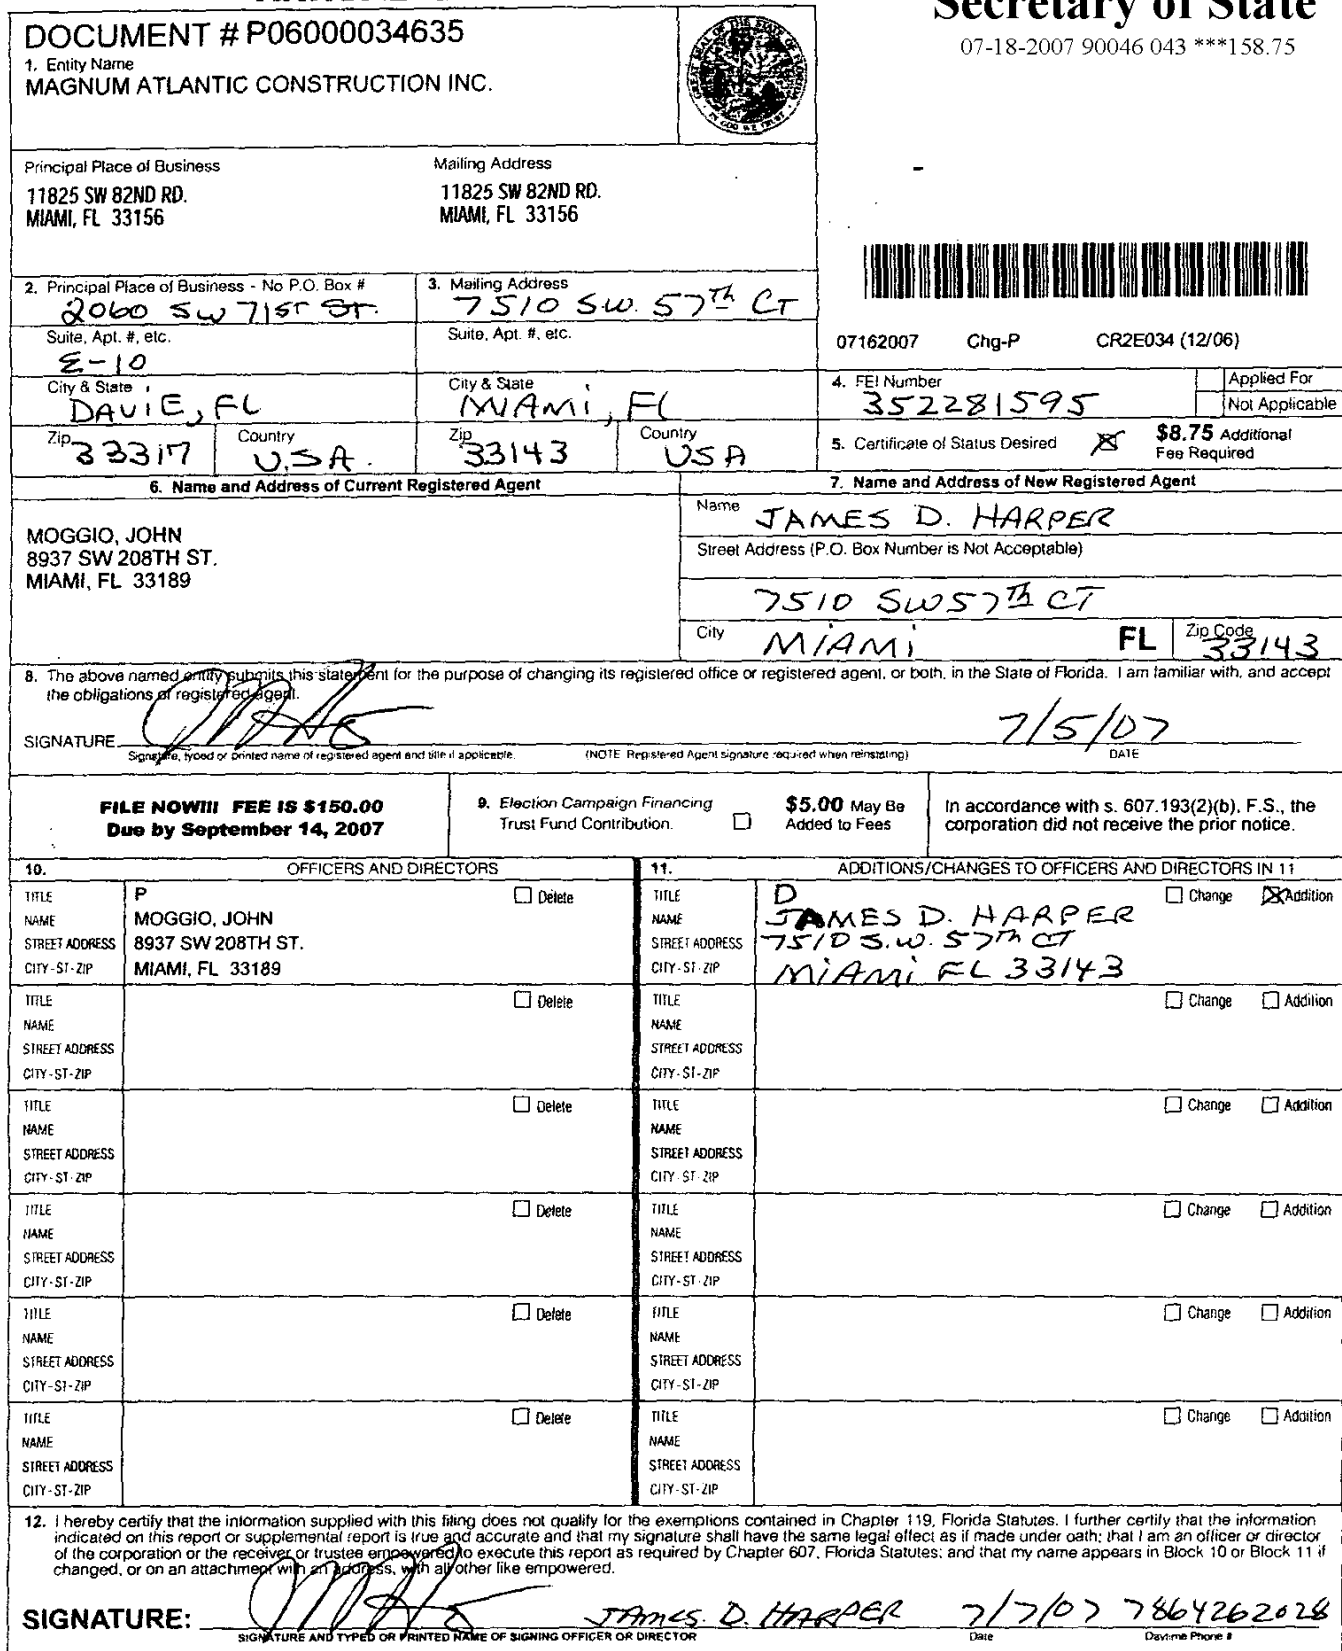 Secretary of State
07-18-2007 90046 043 ***158.75
DOCUMENT # P06000034635
1. Entity Name
MAGNUM ATLANTIC CONSTRUCTION INC.
Principal Place of Business
11825 SW 82ND RD.
MIAMI, FL 33156
Mailing Address
11825 SW 82ND RD.
MIAMI, FL 33156
2. Principal Place of Business - No P.O. Box #
2060 SW 71ST ST.
3. Mailing Address
7510 S.W. 57th CT
Suite, Apt. #, etc.
E-10
Suite, Apt. #, etc.
07162007 Chg-P CR2E034 (12/06)
City & State
DAVIE, FL
City & State
MIAMI, FL
4. FEI Number
352281595
Applied For
Not Applicable
Zip
33317
Country
U.S.A.
Zip
33143
Country
USA
5. Certificate of Status Desired
$8.75 Additional
Fee Required
6. Name and Address of Current Registered Agent
MOGGIO, JOHN
8937 SW 208TH ST.
MIAMI, FL 33189
7. Name and Address of New Registered Agent
Name JAMES D. HARPER
Street Address (P.O. Box Number is Not Acceptable)
7510 SW 57th CT
City MIAMI FL Zip Code 33143
8. The above named entity submits this statement for the purpose of changing its registered office or registered agent, or both, in the State of Florida. I am familiar with, and accept
the obligations of registered agent.
SIGNATURE 7/5/07
Signature, typed or printed name of registered agent and title if applicable. (NOTE Registered Agent signature required when reinstating) DATE
FILE NOW!!! FEE IS $150.00
Due by September 14, 2007
9. Election Campaign Financing
Trust Fund Contribution.
$5.00 May Be
Added to Fees
In accordance with s. 607.193(2)(b), F.S., the
corporation did not receive the prior notice.
10. OFFICERS AND DIRECTORS
TITLE P Delete
NAME MOGGIO, JOHN
STREET ADDRESS 8937 SW 208TH ST.
CITY-ST-ZIP MIAMI, FL 33189
TITLE Delete
NAME
STREET ADDRESS
CITY-ST-ZIP
TITLE Delete
NAME
STREET ADDRESS
CITY-ST-ZIP
TITLE Delete
NAME
STREET ADDRESS
CITY-ST-ZIP
TITLE Delete
NAME
STREET ADDRESS
CITY-ST-ZIP
TITLE Delete
NAME
STREET ADDRESS
CITY-ST-ZIP
11. ADDITIONS/CHANGES TO OFFICERS AND DIRECTORS IN 11
TITLE D Change Addition
NAME JAMES D. HARPER
STREET ADDRESS 7510 S.W. 57th CT
CITY-ST-ZIP MIAMI FL 33143
TITLE Change Addition
NAME
STREET ADDRESS
CITY-ST-ZIP
TITLE Change Addition
NAME
STREET ADDRESS
CITY-ST-ZIP
TITLE Change Addition
NAME
STREET ADDRESS
CITY-ST-ZIP
TITLE Change Addition
NAME
STREET ADDRESS
CITY-ST-ZIP
TITLE Change Addition
NAME
STREET ADDRESS
CITY-ST-ZIP
12. I hereby certify that the information supplied with this filing does not qualify for the exemptions contained in Chapter 119, Florida Statutes. I further certify that the information
indicated on this report or supplemental report is true and accurate and that my signature shall have the same legal effect as if made under oath; that I am an officer or director
of the corporation or the receiver or trustee empowered to execute this report as required by Chapter 607, Florida Statutes; and that my name appears in Block 10 or Block 11 if
changed, or on an attachment with an address, with all other like empowered.
SIGNATURE: JAMES. D. HARPER 7/7/07 7864262028
SIGNATURE AND TYPED OR PRINTED NAME OF SIGNING OFFICER OR DIRECTOR Date Daytime Phone #